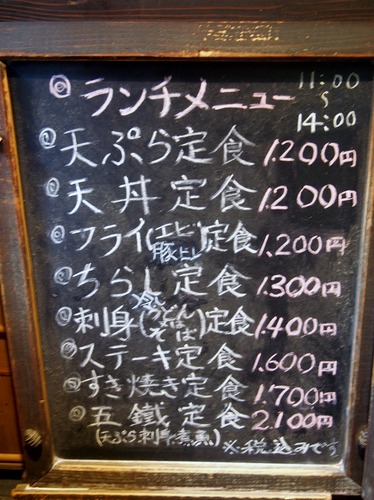 ◎ランチメニュー 11:00〜14:00
◎天ぷら定食 1.200円
◎天丼定食 1.200円
◎フライ(エビ 豚ヒレ)定食 1.200円
◎ちらし定食 1.300円
◎刺身(冷 うどん そば)定食 1.400円
◎ステーキ定食 1.600円
◎すき焼き定食 1.700円
◎五鐵定食 2.100円
(天ぷら刺身煮魚)
※税込みです